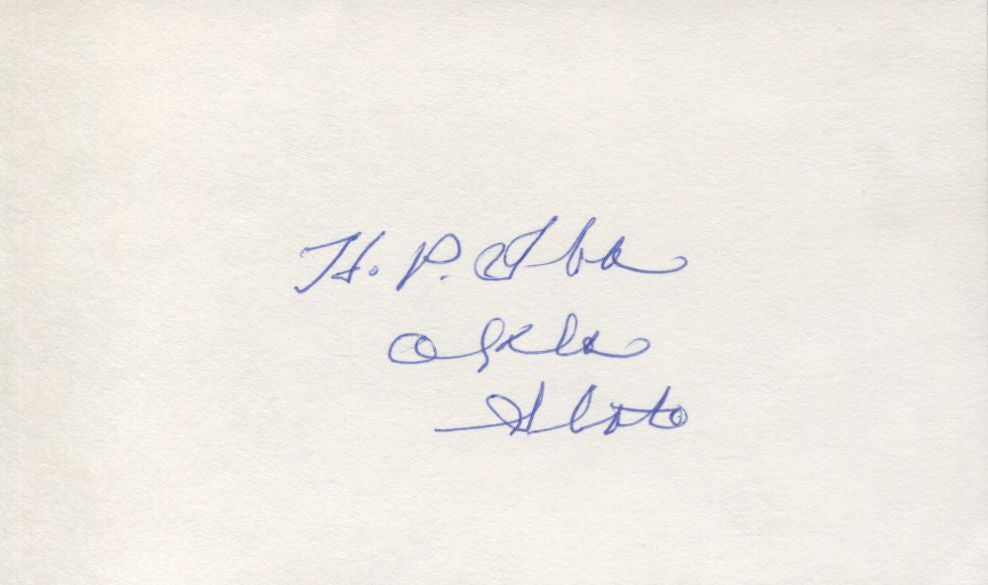 H. P. Iba
Okla
State